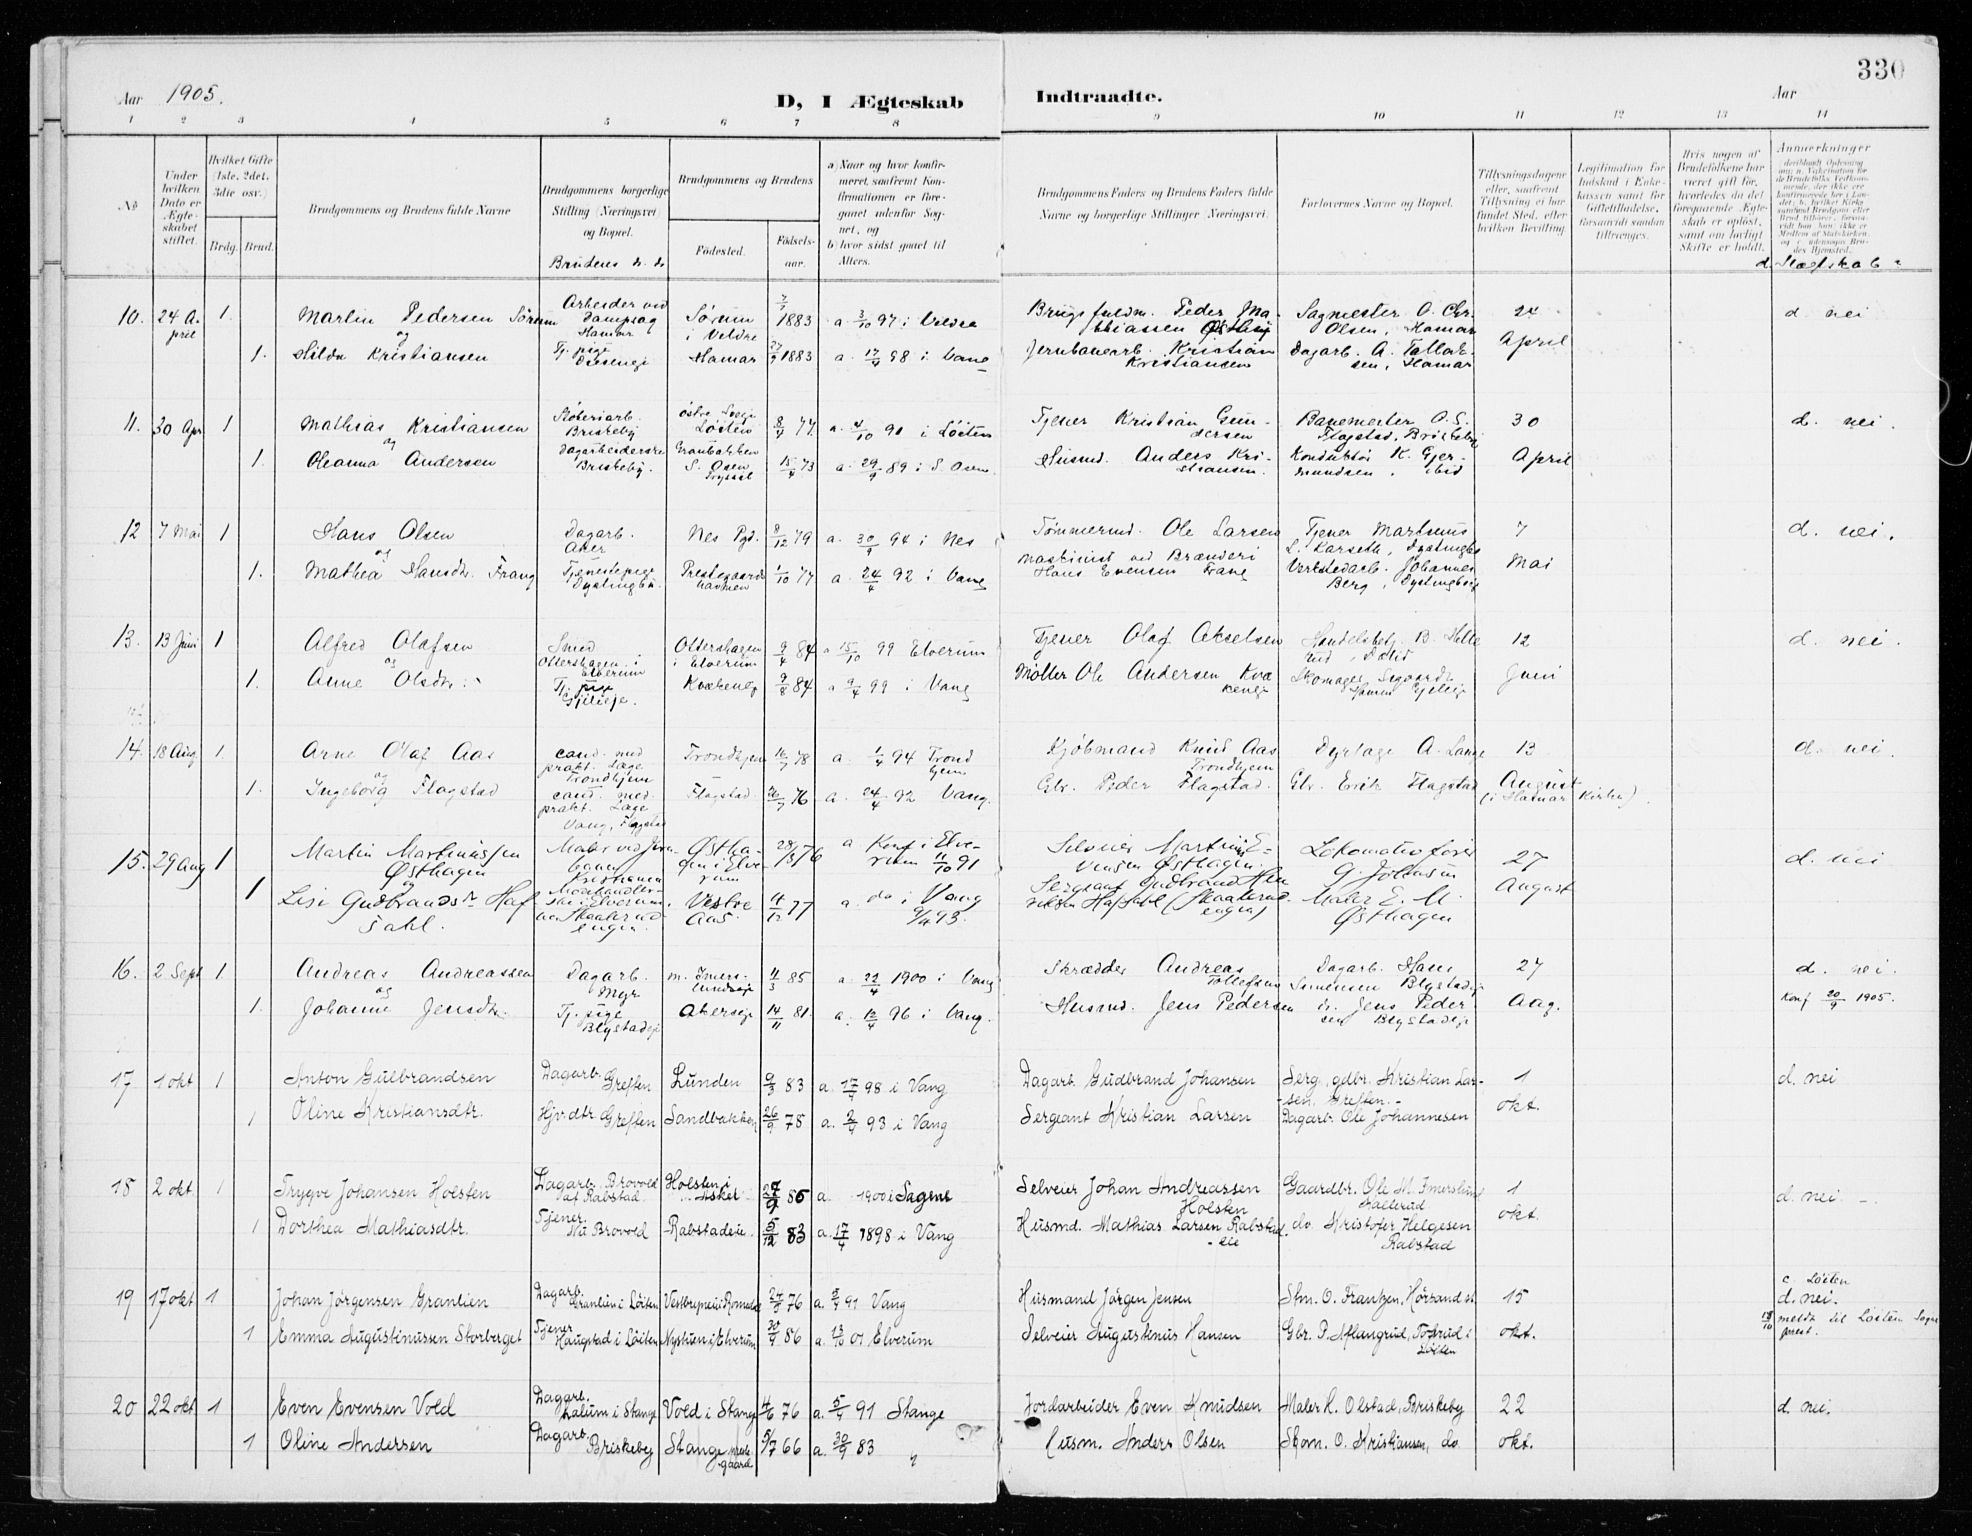 330
Aar 1905.
D, I Ægteskab Indtraadte.
Aar
1 2 3 4 5 6 7 8 9 10 11 12 13 14
No
Under hvilken Dato er Ægteskabet stiftet.
Hvilket Gifte (1ste, 2det, 3die osv.)
Brdg. Brud.
Brudgommens og Brudens fulde Navne
Brudgommens borgerlige Stilling (Næringsvei) og Bopæl.
Brudens do. do
Brudgommens og Brudens
Fødested.
Fødselsaar.
a) Naar og hvor konfirmeret, saafremt Konfirmationen er foregaaet udenfor Sognet, og
b) hvor sidst gaaet til Alters.
Brudgommens Faders og Brudens Faders fulde Navne og borgerlige Stillinger (Næringsvei).
Forlovernes Navne og Bopæl.
Tillysningsdagene eller, saafremt Tillysning ei har fundet Sted, efter hvilken Bevilling.
Legitimation for Indskud i Enkekassen samt for Giftetilladelse, forsaavidt saadan tiltrænges.
Hvis nogen af Brudefolkene har været gift før, hvorledes da det foregaaende Ægteskab er opløst, samt om lovligt Skifte er holdt.
Anmerkninger
d. Slægtskab?
10. 24 April 1. Martin Pedersen Sørum Arbeider ved Dampsag Hamar Sørum i Veldre 7/7 1883 a 3/10 97 i Veldre Brugsfuldm. Peder Mathiassen Sagmester O. Chr. Olsen, Hamar 24 d. nei
og
1. Hilda Kristiansen Tj. pige Hamar 27/9 1883 a. 17/4 98 i Vang Jernbanearb. Kristian Kristiansen Dagarb. A. Tollefsen, Hamar April
11. 30 Apr 1 Mathias Kristiansen Støberiarb. Briskeby Løiten 8/4 77 a. 4/10 91 i Løiten Tjener Kristian Gundersen Banemester O. S. Flagstad, Briskeby 30 d. nei.
og
1. Oleanna Andersen Dagarbeiderske Briskeby. Granbakken S. Osen Trysil 15/4 73 a. 29/9 89 i S. Osen Husmd. Anders Kristiansen. Konduktør K. Gjermundsen, ibid April
12 7 Mai 1 Hans Olsen Dagarb. Aker Nes Pgd. 8/12 79 a. 30/9 94 i Nes Tømmermd. Ole Larsen Tjener Martinus L. Karseth, Dystingbo 7 d. nei.
og
1. Mathea Hansdtr. Frang Tjenestepige Dystingbo. 1/10 77 a. 24/4 92 i Vang Maskinist ved Brænderi Hans Evensen Frang Verkstedarb. Johannes Berg, Dystingbo Mai
13. 13 Juni 1 Alfred Olafsen Smed Ottershagen i Elverum Ottershagen i Elverum 9/4 84 a 15/10 99 Elverum Tjener Olaf Akselsen 12 d. nei.
og
1. Anne Olsdtr. Tj. pige Kvæbergs 9/8 84 a 9/4 99 i Vang Møller Ole Andersen Skomager Juni
14. 18 Aug 1. Arne Olaf Aas cand. med prakt. Læge Trondhjem Trondhjem 16/7 78 a. 1/4 94 Trondhjem Kjøbmand Knud Aas Trondhjem Dyrlæge A. Lange 13 d. nei.
og
1. Ingeborg Flagstad cand. med. prakt. Læge Vang, Flagstad Flagstad 26/7 76 a. 24/4 92 Vang. Gbr. Peder Flagstad. Gbr. Erik Flagstad August (i Hamar Kirke).
15. 29 Aug 1 Martin Martinussen Østhagen Maler ved Jernbanen Kristiania Østhagen i Elverum 28/3 76 a Konf i Elverum 11/10 91 Selveier Martinus Evensen Østhagen Lokomotivfører G. Johnsen 27 d. nei
og
1 Lisi Gudbrandsdr. Hafsahl. Vestre Aas 4/12 77 a. do i Vang 9/4 93. Sergeant Gudbrand Henriksen Hafsahl Maler E. M. Østhagen August
16. 2 Sept 1 Andreas Andreassen Dagarb. Myr 11/3 85 a. 22/4 1900 i Vang Skrædder Andreas Tollefsen Dagarb. Hans Simensen Blystadeje 27 d. nei.
og
1. Johanne Jensdtr. Tj. pige Blystadeje Akerseje 14/11 81. a. 12/4 96 i Vang. Husmd. Jens Pedersen do. Jens Pedersen Blystadeje Aug. Konf 20/9 1905.
17 1 okt 1 Anton Gulbrandsen Dagarb. Greften Lunden 9/3 83 a. 17/4 98 i Vang Dagarb. Gudbrand Johansen Serg., gdbr. Kristian Larsen, Greften. 1 d. nei
1 Oline Kristiansdtr. Hjv. dtr. Greften Sandbakken 26/9 78 a. 2/4 93 i Vang Sergeant Kristian Larsen Dagarb. Ole Johannesen okt.
18 2 okt 1 Trygve Johansen Holsten Dagarb. Brovold af Rabstad Holsten i Asker 27/9 85 a 1900 i Sagene Selveier Johan Andreassen Holsten Gaardbr. Ole M. Imerslund 1 d. nei. -
1 Dorthea Mathiasdtr. Tjener. Nu Brovold Rabstadeie 5/12 83 a. 17/4 1898 i Vang Husmd. Mathias Larsen Rabstadeie do. Kristofer Helgesen Rabstad okt.
19 17 okt 1 Johan Jørgensen Granlien Dagarb. Granlien i Løiten Vestbyneie i Romedal 24/5 76 a. 5/4 91 Vang Husmand Jørgen Jensen Stm. O. Frantzen, Hørsand st. 15 c. Løiten d. nei.
1 Emma Augustinussen Storberget Tjener Haugstad i Løiten Nystuen i Elverum 20/9 86 a. 13/10 01 Elverum Selveier Augustinus Hansen Gbr. P. Aflangrud, Tofsrud i Løiten okt. 18/10 meldt til Løiten Sogneprest.
20 22 okt 1 Even Evensen Vold Dagarb. Lalum i Stange Vold i Stange 4/6 76 a. 5/4 91 Stange Jordarbeider Even Knudsen Maler K. Olstad, Briskeby 22 d. nei.
1 Oline Andersen Dagarb. Briskeby Stange prestegaard 5/7 66 a. 30/9 83 " Husm. Anders Olsen Skom. O. Kristiansen, do okt.